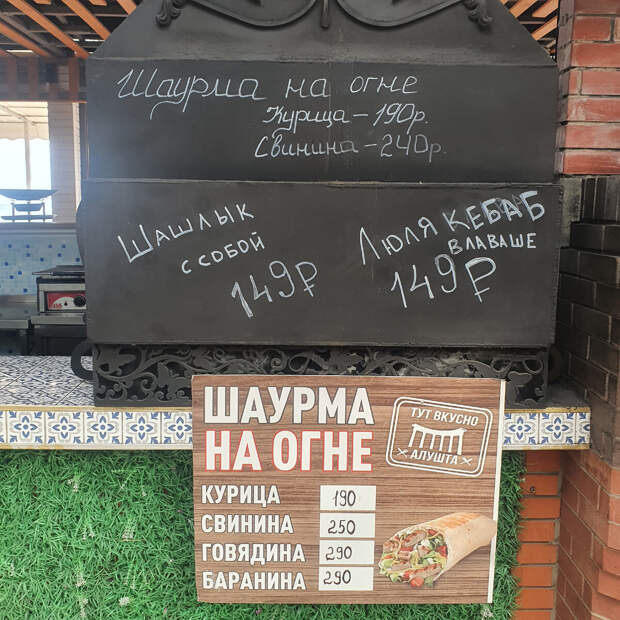 Шаурма на огне
Курица – 190р.
Свинина – 240р.
ШАШЛЫК
С СОБОЙ
149₽
ЛЮЛЯ КЕБАБ
В ЛАВАШЕ
149₽
ШАУРМА
НА ОГНЕ
ТУТ ВКУСНО
АЛУШТА
КУРИЦА 190
СВИНИНА 250
ГОВЯДИНА 290
БАРАНИНА 290